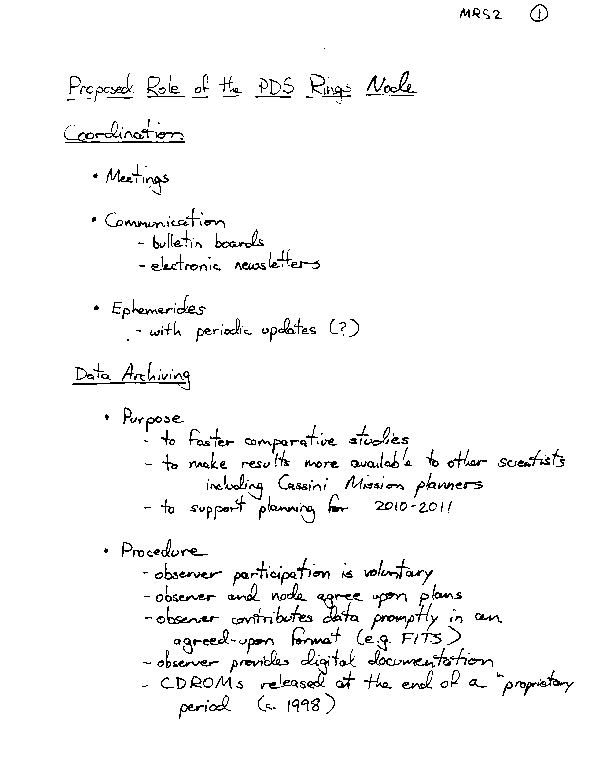 MRS2 ①
Proposed Role of the PDS Rings Node
Coordination
• Meetings
• Communication
- bulletin boards
- electronic newsletters
• Ephemerides
- with periodic updates (?)
Data Archiving
• Purpose
- to foster comparative studies
- to make results more available to other scientists
including Cassini Mission planners
- to support planning for 2010-2011
• Procedure
- observer participation is voluntary
- observer and node agree upon plans
- observer contributes data promptly in an
agreed-upon format (e.g. FITS)
- observer provides digital documentation
- CDROMs released at the end of a "proprietary
period (c. 1998)